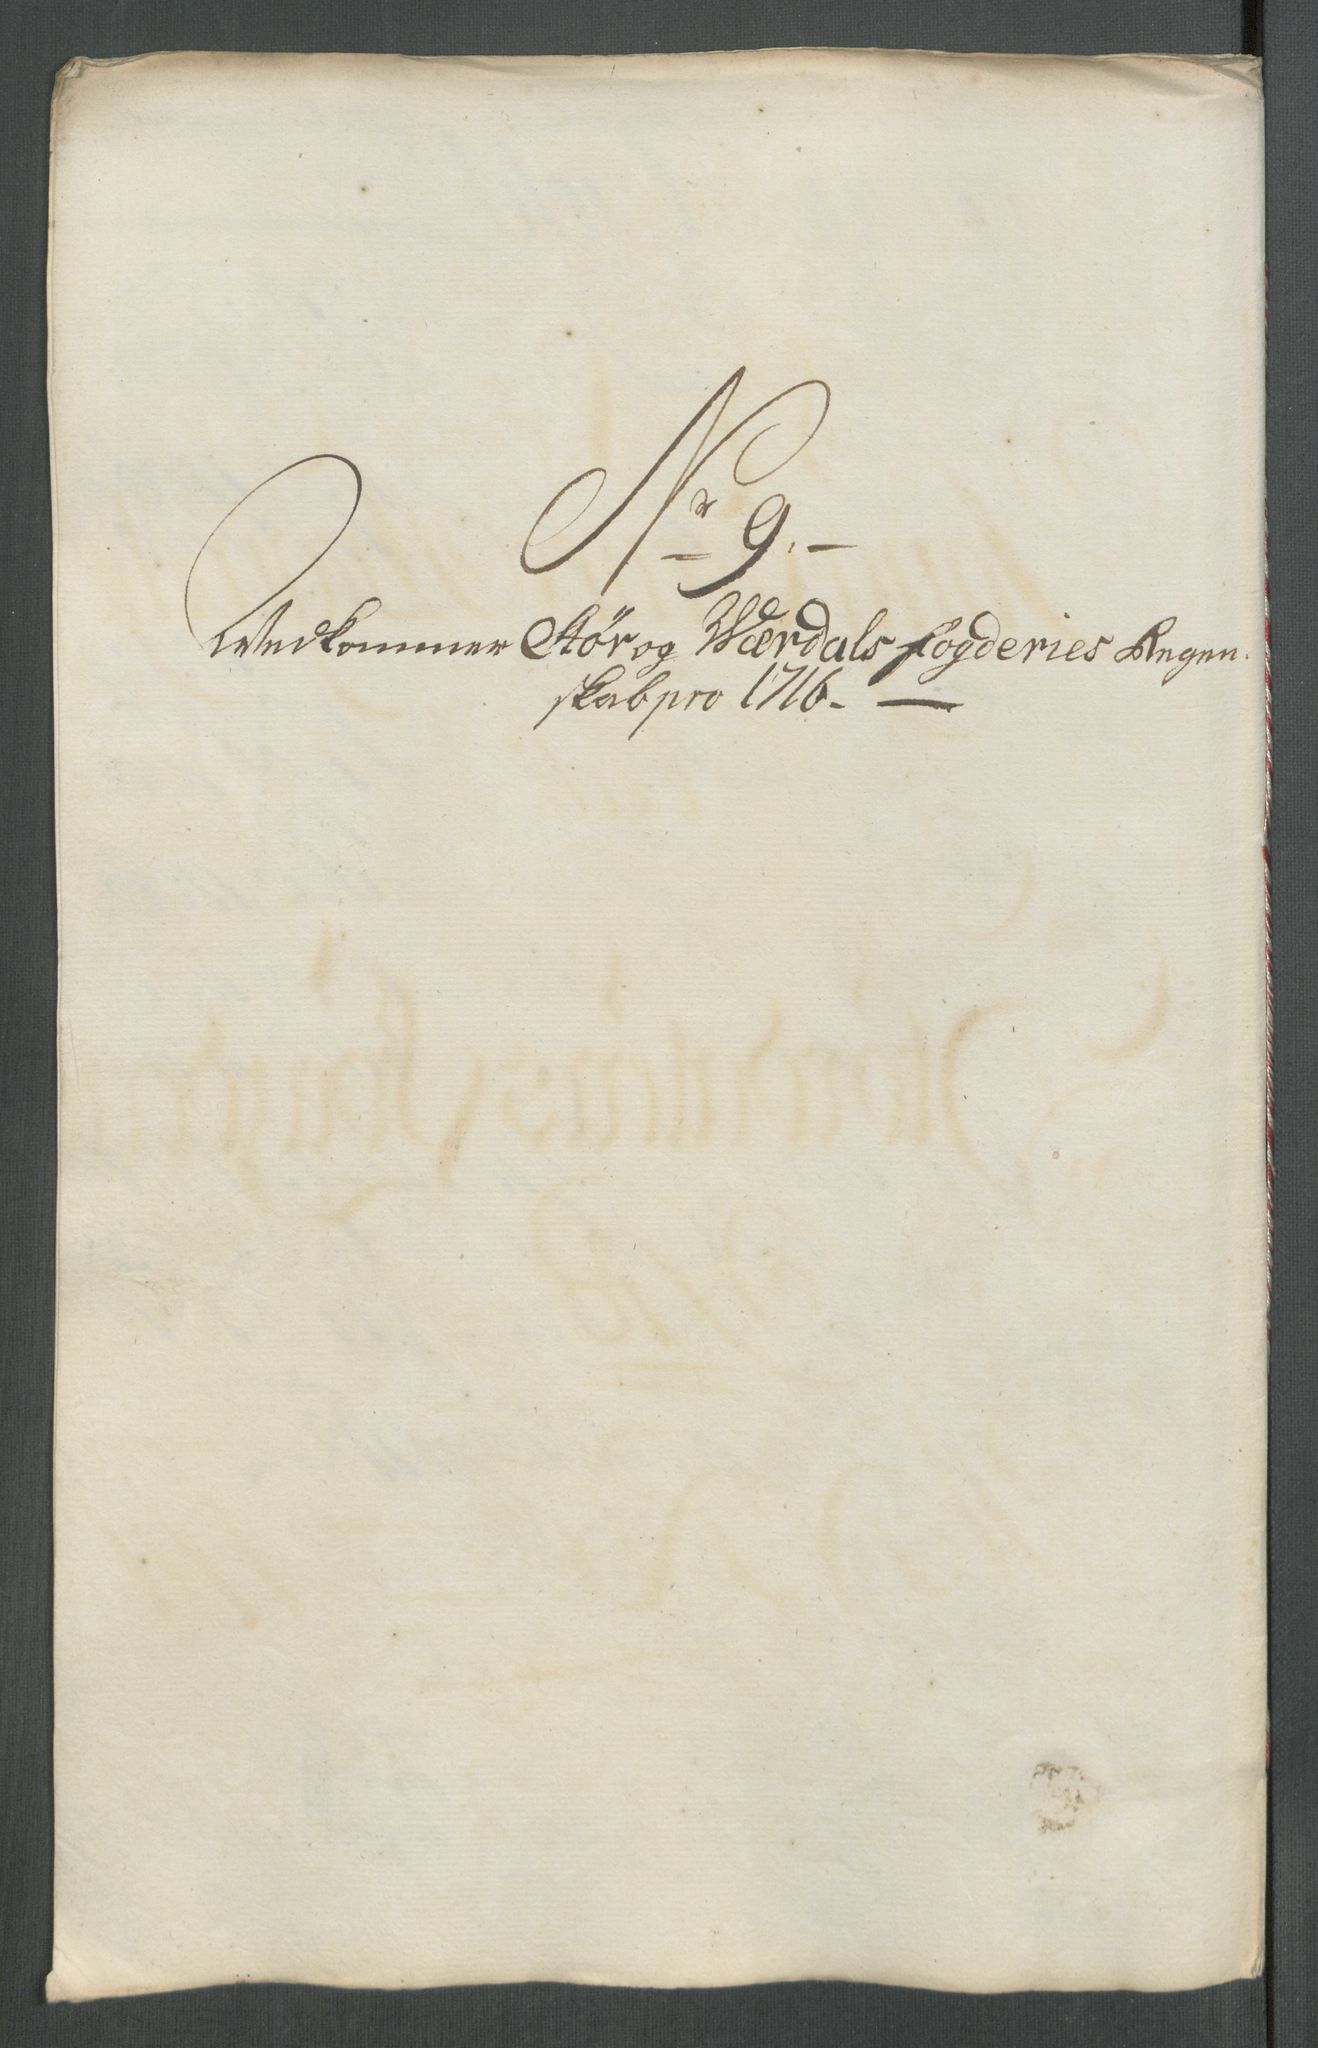 Nr 9.
Vedkommer Stør og Værdals Fogderies Regen-
skab pro 1716.